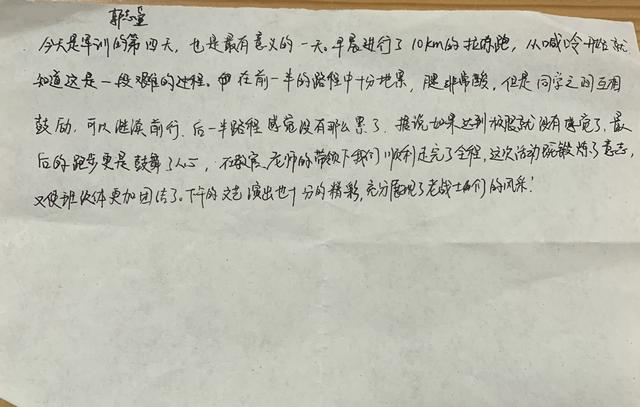 郭志
今天是军训的第四天，也是最有意义的一天。早晨进行了10km的拉练跑，从喊口令开始就
知道这是一段艰难的过程。在前一半的路程中十分地累，腿非常酸，但是同学之间互相
鼓励，可以继续前行，后一半路程感觉没有那么累了，据说如果达到极限就没有感觉了，最
后的跑步更是鼓舞了人心，在教官、老师的带领下我们顺利走完了全程，这次活动既锻炼了意志，
又使班级体更加团结了。下午的文艺演出也十分的精彩，充分展现了老战士们的风采！